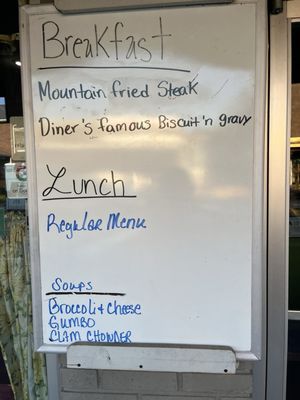 Breakfast
Mountain fried Steak
Diner's famous Biscuit'n gravy
Lunch
Regular Menu
Soups
Broccoli & Cheese
GUMBO
CLAM CHOWDER